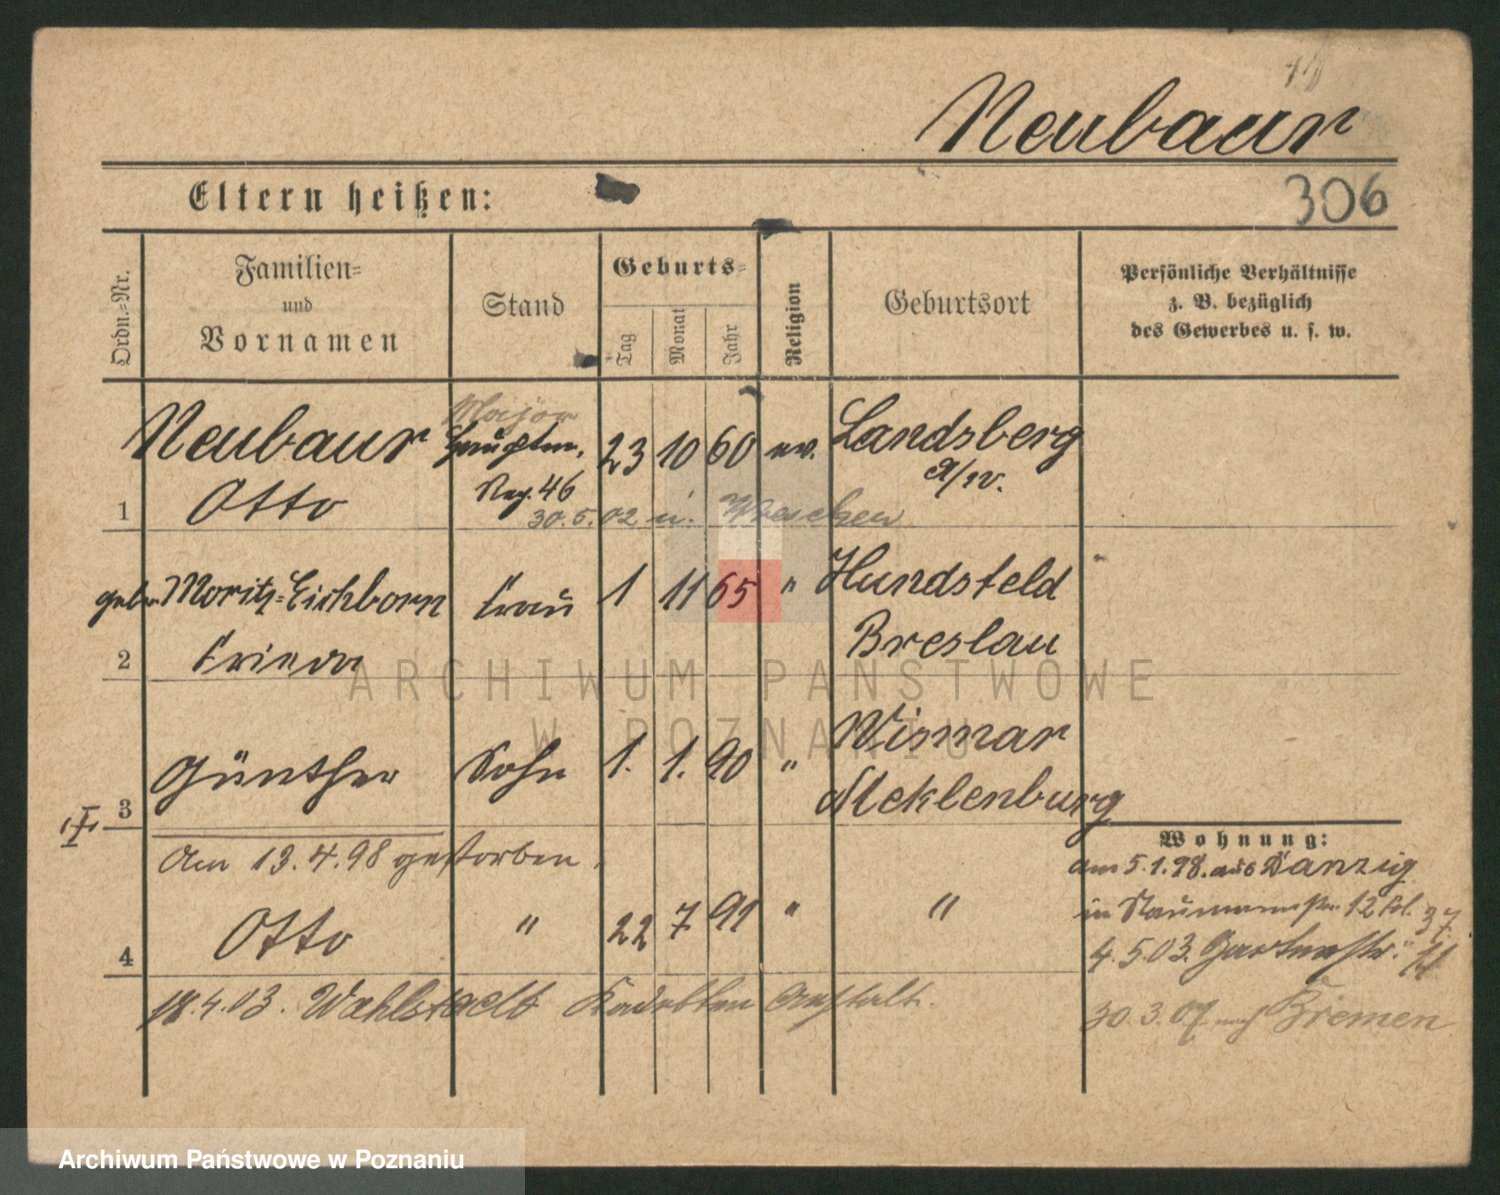 Neubaur
Eltern heißen:
306
Ordn.-Nr.
Familien-
und
Vornamen
Stand
Geburts-
Tag
Monat
Jahr
Religion
Geburtsort
Persönliche Verhältnisse
z. B. bezüglich
des Gewerbes u. s. w.
Major
Neubaur Hauptm. 23 10 60 ev. Landsberg
a/W.
1 Otto Reg. 46
30.5.02 n. Wreschen
geb. Moritz-Eichborn Frau 1 11 65 " Hundsfeld
2 Frieda Breslau
Wismar
3 Günther Sohn 1. 1. 90 " Mecklenburg
Am 13.4.98 gestorben.
Wohnung:
am 5.1.98. aus Danzig
in Naumannstr. 12
4 Otto " 22 7 91 " "
4.5.03. Gartenstr. 11
18.4.03. Wahlstadt Kadetten Anstalt.
30.3.07 nach Bremen
ARCHIWUM PAŃSTWOWE
W POZNANIU
Archiwum Państwowe w Poznaniu